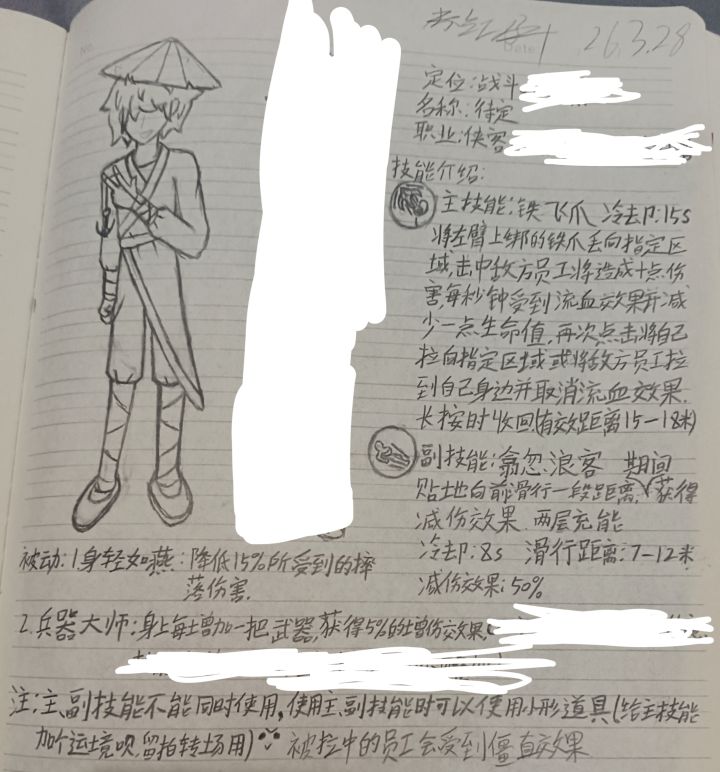 26.3.28
Date
No.
定位:战斗
名称:待定
职业:侠客
技能介绍:
主技能:铁飞爪 冷却:15s
将左臂上绑的铁爪丢向指定区
域,击中敌方员工将造成十点伤
害,每秒钟受到流血效果并减
少一点生命值,再次点击将自己
拉向指定区域或将敌方员工拉
到自己身边并取消流血效果.
长按时收回(有效距离15-18米)
副技能:翕忽·浪客
贴地向前滑行一段距离,期间获得
减伤效果.两层充能
冷却:8s 滑行距离:7-12米
减伤效果:50%
被动:1.身轻如燕:降低15%所受到的摔
落伤害.
2.兵器大师:身上每增加一把武器,获得5%的增伤效果,
注:主、副技能不能同时使用,使用主、副技能时可以使用小形道具(给主技能
加个运镜呗,留拍转场用)
被拉中的员工会受到僵直效果